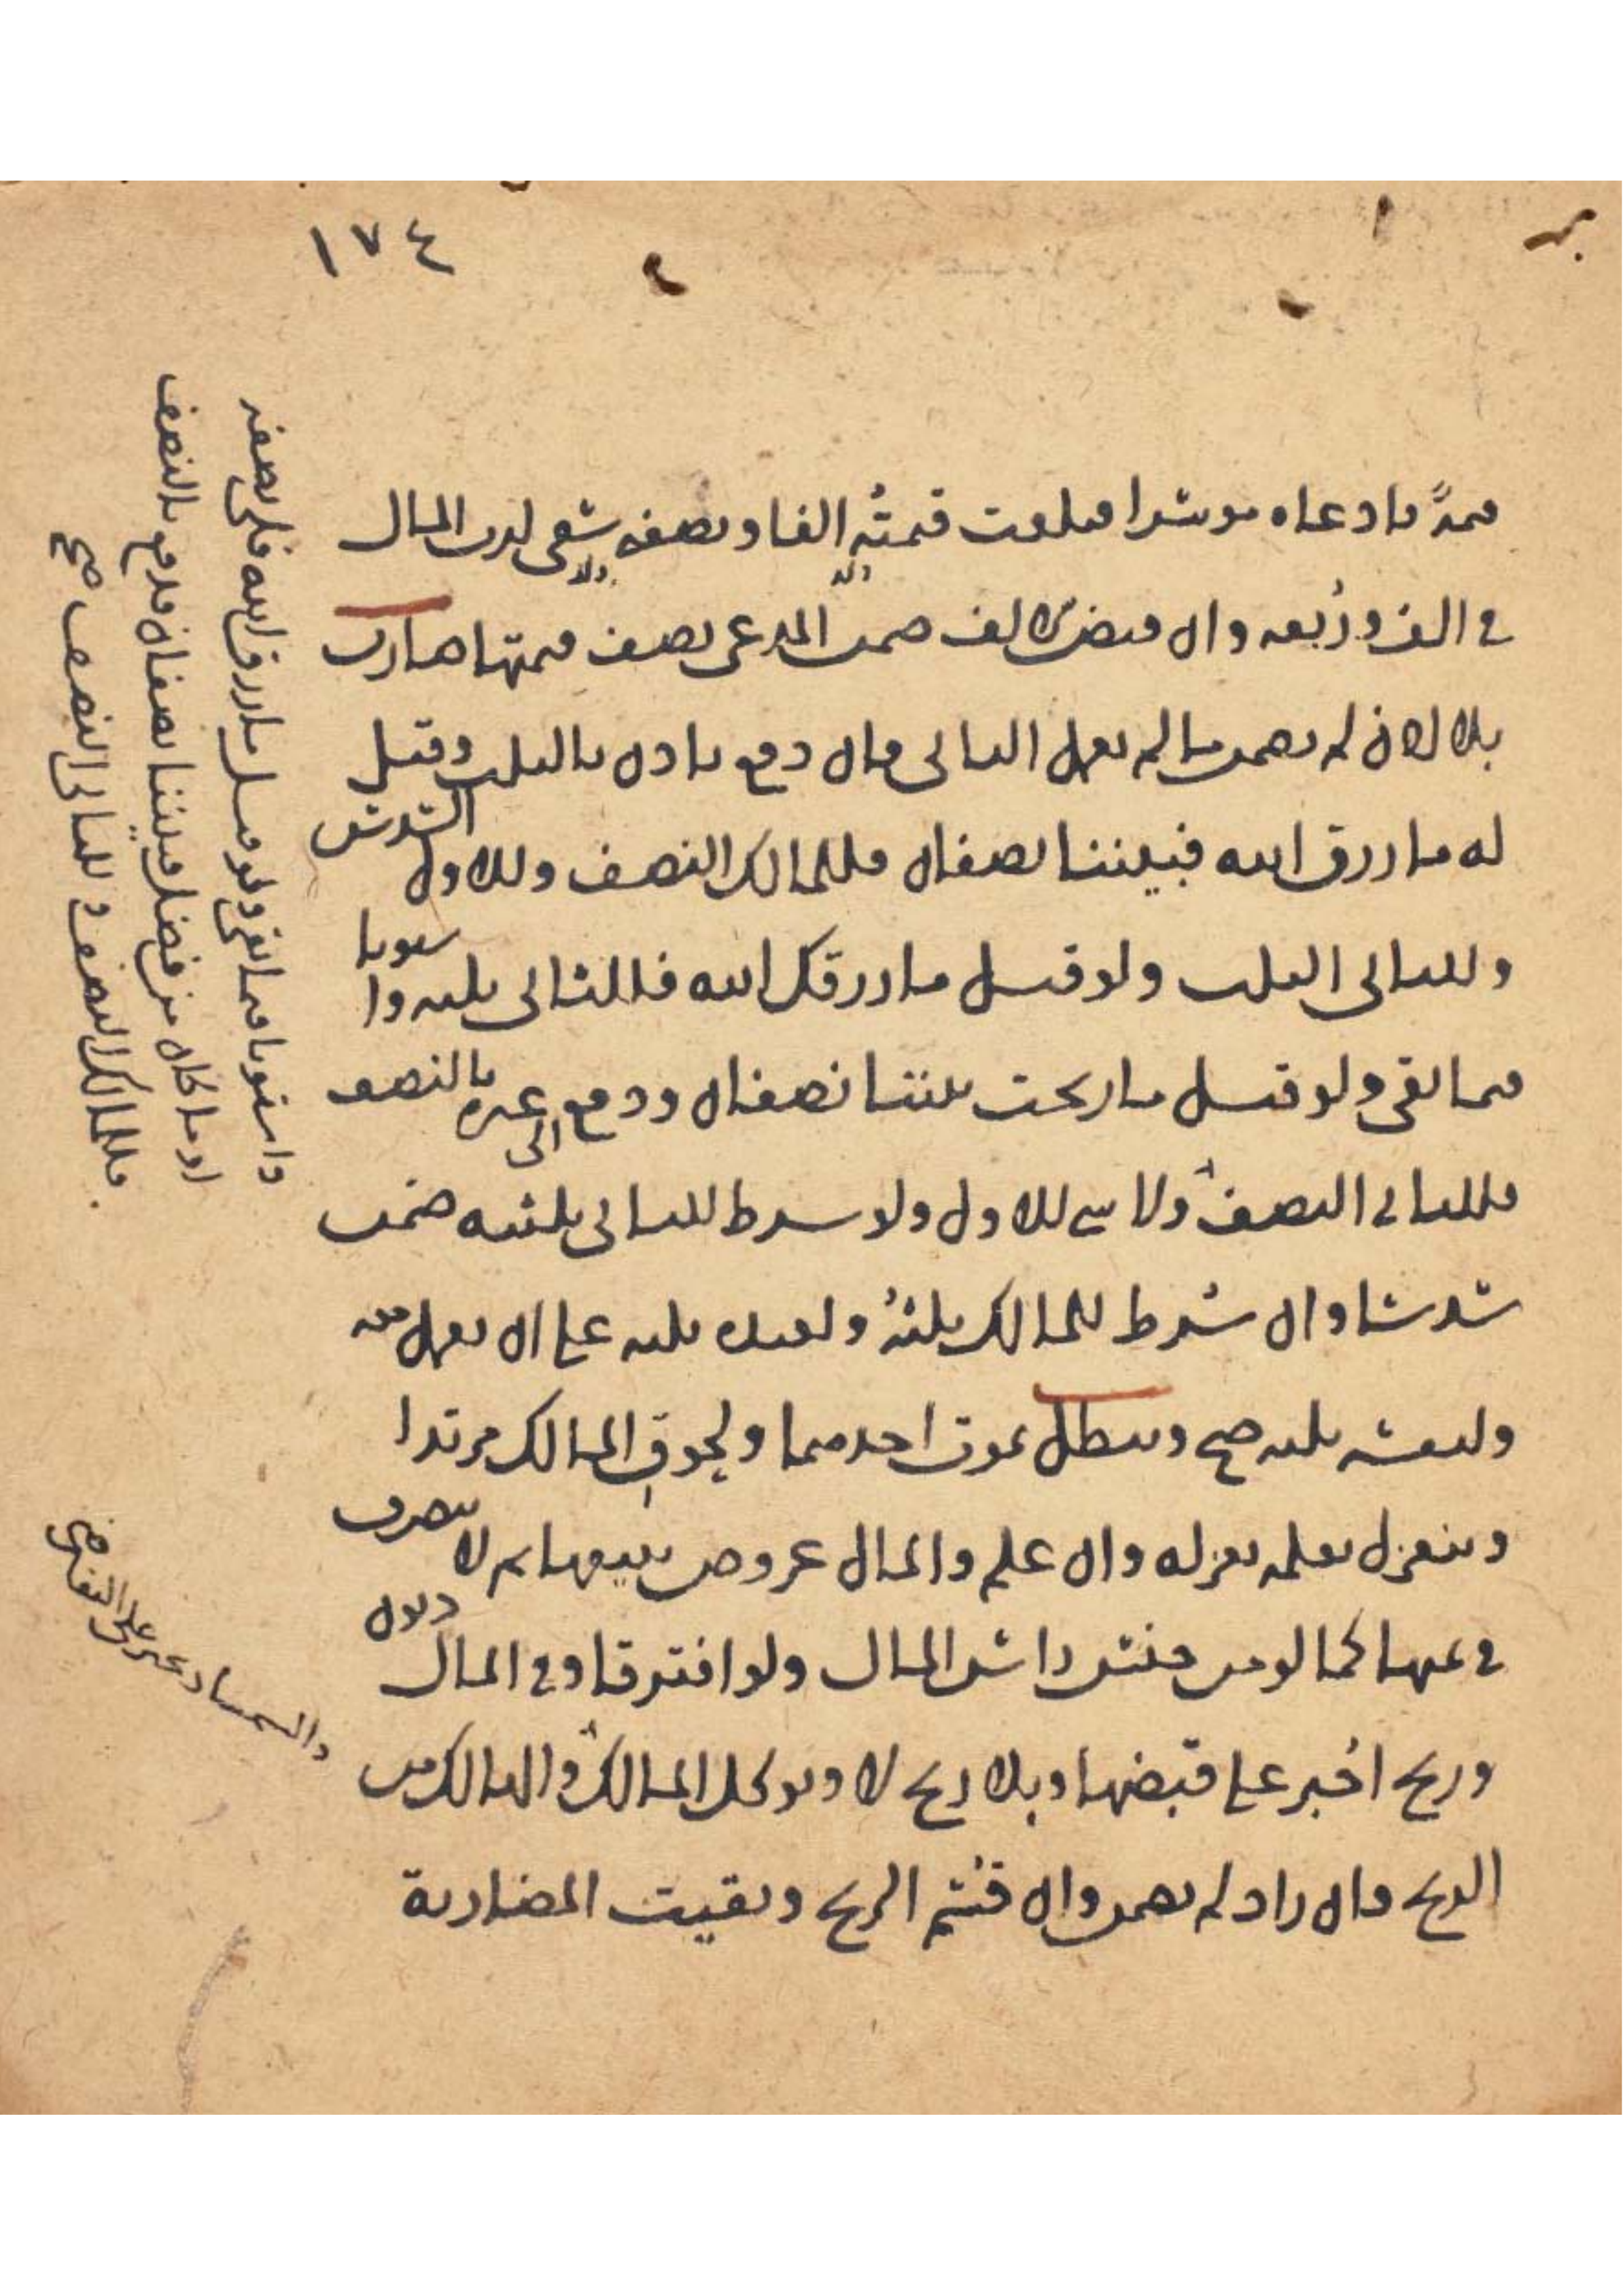 ١٧٤
قيمةً فادعاه موسرا فبلغت قيمتُه الفا ونصفه سعى لرب المال
في الف وربعه وان قبض الالف ضمن المدعى نصف قيمتها ضارب
بلا اذن لم يضمن ما لم يعمل الثاني فان دفع باذن بالثلث وقيل
له ما رزق الله فبيننا نصفان فللمالك النصف وللاول السدس
وللثاني الثلث ولو قيل ما رزقك الله فللثاني ثلثه واستويا
فيما بقى ولو قيل ما ربحت بيننا نصفان ودفع الى غيره بالنصف
فللثاني النصف ولا شي للاول ولو شرط للثاني ثلثيه ضمن
سدسا وان شرط للمالك ثلثهُ ولعبده ثلثه على ان يعمل معه
ولنفسه ثلثه صح وتبطل بموت احدهما ولحوق المالك مرتدا
وينعزل بعلمه بعزله وان علم والمال عروض يبيعها ثم لا يتصرف
في ثمنها كما لو من جنس راس المال ولو افترقا وفي المال ديون
وربح اجبر على قبضها وبلا ربح لا ويوكل المالك والهالك من
الربح فان زاد لم يضمن وان قسم الربح وبقيت المضاربة
واستويا فيما بقى ولو قيل ما رزق الله فلى نصفه
او ما كان من فضل فبيننا نصفان فدفع بالنصف
فللمالك النصف وللثاني النصف صح
والسمسار يجبر على التقاضى